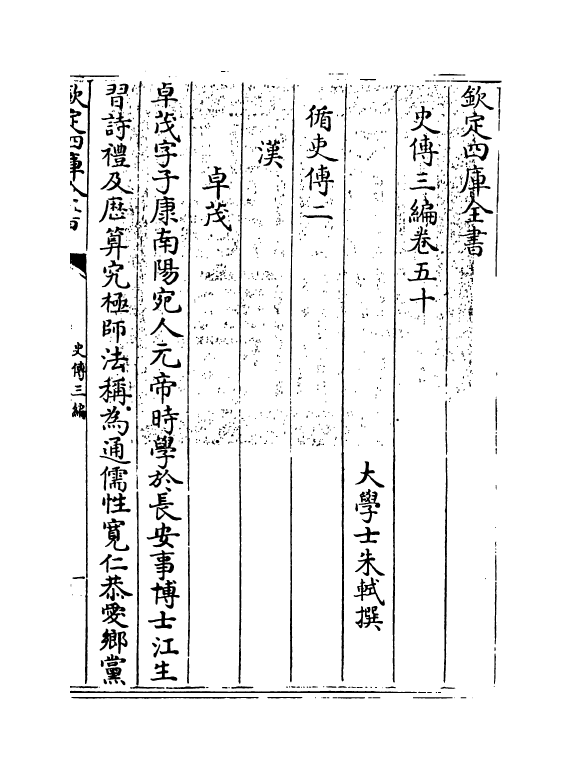 欽定四庫全書
史傳三編卷五十
大學士朱軾撰
循吏傳二
漢
卓茂
卓茂字子康南陽宛人元帝時學於長安事博士江生
習詩禮及歴算究極師法稱為通儒性寛仁恭愛鄉黨
欽定四庫全書
史傳三編
一